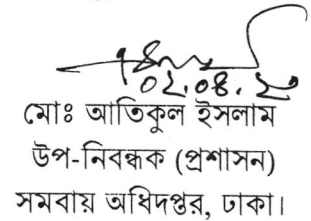 ০২.০৪.২০
মোঃ আতিকুল ইসলাম
উপ-নিবন্ধক (প্রশাসন)
সমবায় অধিদপ্তর, ঢাকা।